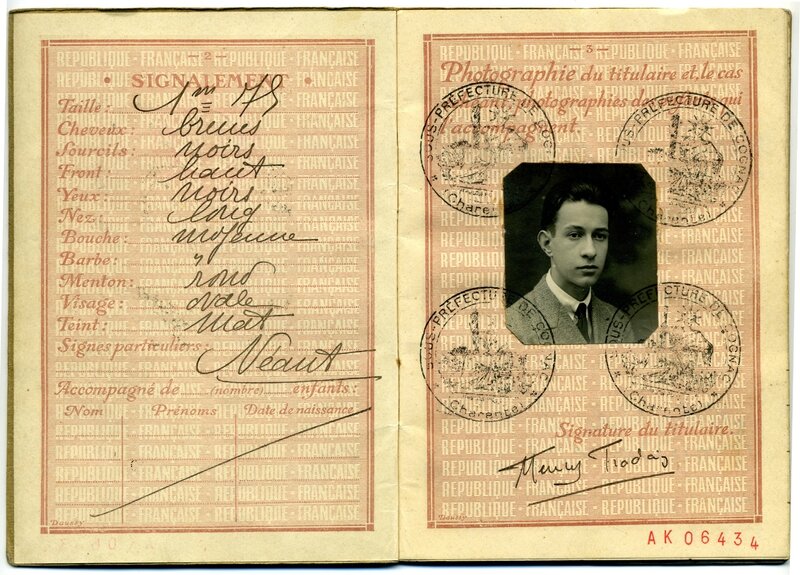 — 2 —
SIGNALEMENT
Taille : 1m 75
Cheveux : bruns
Sourcils : noirs
Front : haut
Yeux : noirs
Nez : long
Bouche : moyenne
Barbe : "
Menton : rond
Visage : ovale
Teint : mat
Signes particuliers :
Néant
Accompagné de (nombre) enfants :
Nom Prénoms Date de naissance
— 3 —
Photographie du titulaire et, le cas
échéant, photographies des enfants qui
l'accompagnent.
SOUS-PRÉFECTURE DE COGNAC
(Charente)
SOUS-PRÉFECTURE DE COGNAC
(Charente)
SOUS-PRÉFECTURE DE COGNAC
(Charente)
SOUS-PRÉFECTURE DE COGNAC
(Charente)
Signature du titulaire.
Henry
AK 06434
RÉPUBLIQUE - FRANÇAISE